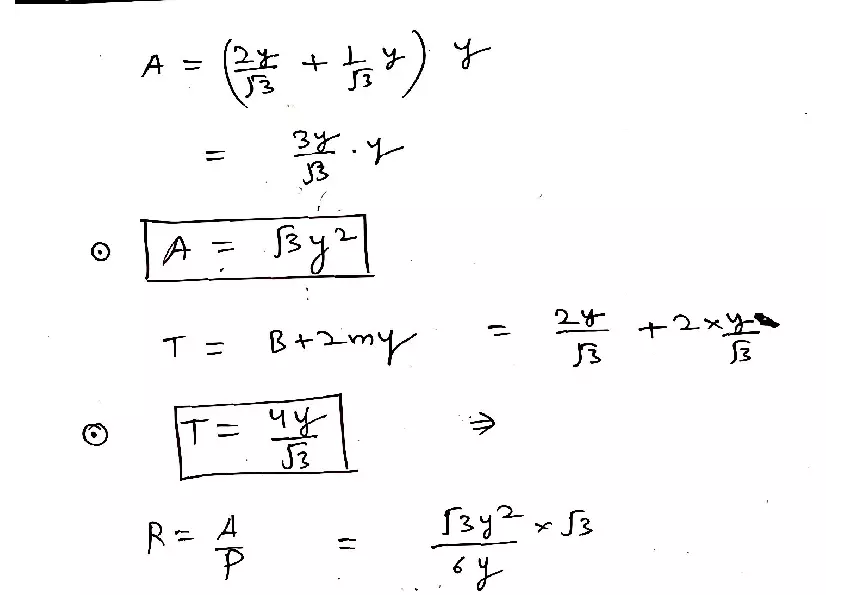 A = (2y/√3 + 1/√3 y) y
= 3y/√3 . y
⊙ A = √3y²
T = B+2my = 2y/√3 + 2×y/√3
⊙ T = 4y/√3 ⇒
R = A/P = √3y²/6y × √3